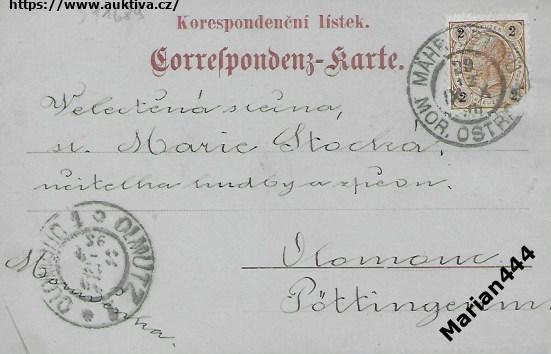 https://www.auktiva.cz/
Korespondenční lístek.
Correspondenz-Karte.
2 2
2 2
MÄHR. OSTRAU
MOR. OSTRA
Velectěná slečna,
sl. Marie Stocká,
učitelka hudby a zpěvu.
Olomouc.
Pöttingerova
OLOMOUC 1 OLMÜTZ
Marian444